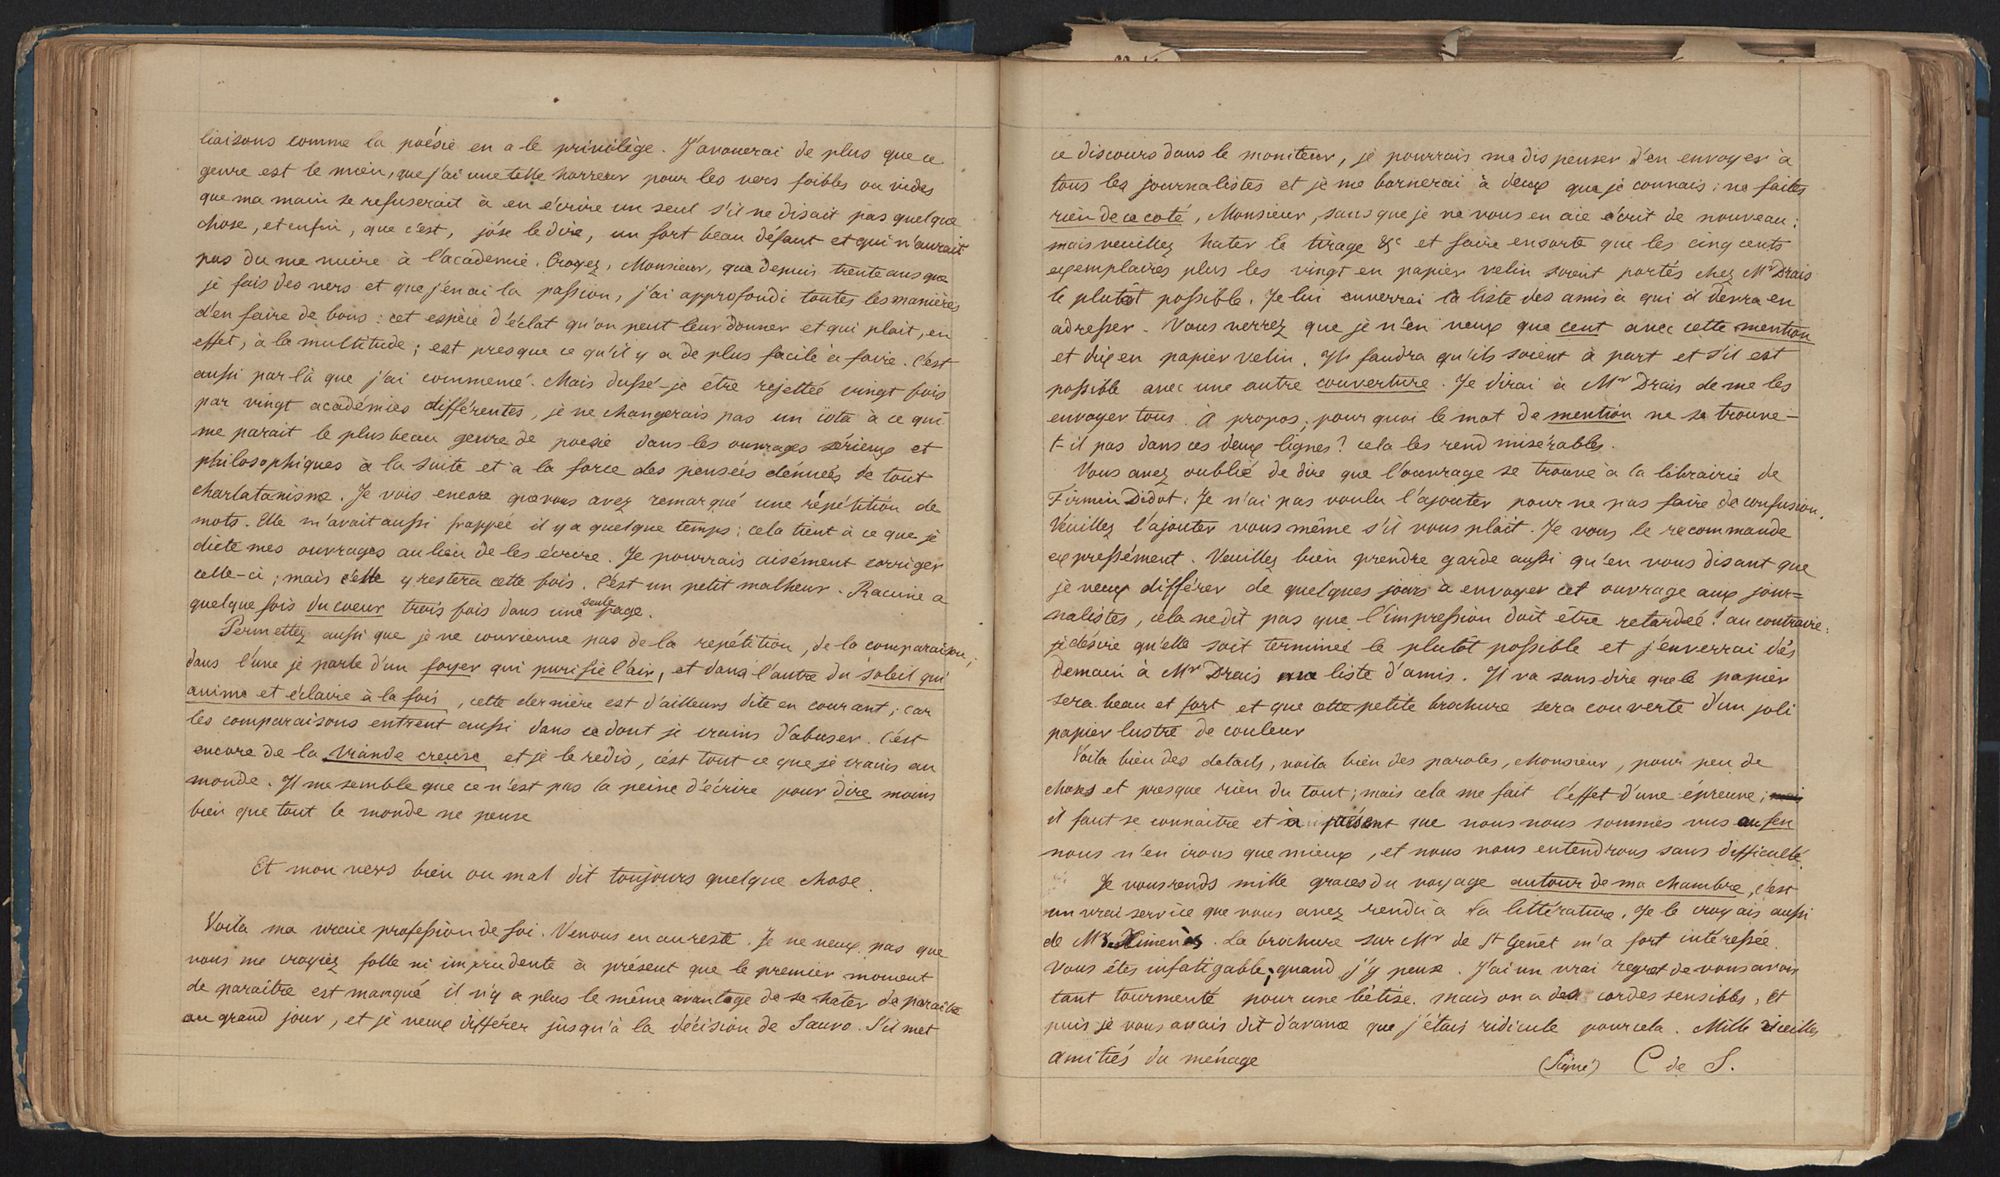 liaisons comme la poésie en a le privilège. J'avouerai de plus que ce
genre est le mien, que j'ai une telle horreur pour les vers foibles ou vides
que ma main se refuserait à en écrire un seul s'il ne disait pas quelque
chose, et enfin, que c'est, j'ose le dire, un fort beau défaut et qui n'aurait
pas du me nuire à l'académie. Croyez, Monsieur, que depuis trente ans que
je fais des vers et que j'en ai la passion, j'ai approfondi toutes les manières
d'en faire de bons: cet espèce d'éclat qu'on peut leur donner et qui plait, en
effet, à la multitude; est presque ce qu'il y a de plus facile à faire. C'est
aussi par là que j'ai commencé. Mais dussé-je être rejettée vingt fois
par vingt académies différentes, je ne changerais pas un iota à ce qui
me parait le plus beau genre de poesie dans les ouvrages sérieux et
philosophiques à la suite et a la force des pensées dénuées de tout
charlatanisme. Je vois encore que vous avez remarqué une répétition de
mots. Elle m'avait aussi frappée il y a quelque temps; cela tient à ce que je
dicte mes ouvrages au lieu de les écrire. Je pourrais aisément corriger
celle-ci; mais elle y restera cette fois. C'est un petit malheur. Racine a
quelque fois du coeur trois fois dans une seule page.
Permettez aussi que je ne convienne pas de la repétition, de la comparaison;
dans l'une je parle d'un foyer qui purifie l'air, et dans l'autre du soleil qui
anime et éclaire à la fois, cette dernière est d'ailleurs dite en courant; car
les comparaisons entrent aussi dans ce dont je crains d'abuser. C'est
encore de la viande creuse et je le redis, c'est tout ce que je crains au
monde. Il me semble que ce n'est pas la peine d'écrire pour dire moins
bien que tout le monde ne pense
Et mon vers bien ou mal dit toujours quelque chose.
Voila ma vraie profession de foi. Venons en au reste. Je ne veux pas que
vous me croyiez folle ni imprudente à présent que le premier moment
de paraitre est manqué il n'y a plus le même avantage de se hâter de paraitre
au grand jour, et je veux différer jusqu'à la décision de Sauvo. S'il met
ce discours dans le moniteur, je pourrais me dispenser d'en envoyer à
tous les journalistes et je me bornerai à deux que je connais: ne faites
rien de ce coté, Monsieur, sans que je ne vous en aie écrit de nouveau:
mais veuillez hater le tirage &c et faire ensorte que les cinq cents
exemplaires plus les vingt en papier velin soient portés chez Mr Drais
le plutôt possible. Je lui enverrai la liste des amis à qui il devra en
adresser. Vous verrez que je n'en veux que cent avec cette mention
et dix en papier velin. Il faudra qu'ils soient à part et s'il est
possible avec une autre couverture. Je dirai à Mr Drais de me les
envoyer tous. A propos, pourquoi le mot de mention ne se trouve-
t-il pas dans ces deux lignes? cela les rend misérables.
Vous avez oublié de dire que l'ouvrage se trouve à la librairie de
Firmin Didot: Je n'ai pas voulu l'ajouter pour ne pas faire de confusion.
Veuillez l'ajouter vous même s'il vous plait. Je vous le recommande
expressément. Veuillez bien prendre garde aussi qu'en vous disant que
je veux différer de quelques jours à envoyer cet ouvrage aux jour=
nalistes, cela ne dit pas que l'impression doit être retardée! au contraire:
je désire qu'elle soit terminée le plutôt possible et j'enverrai dès
demain à Mr Drais liste d'amis. Il va sans dire que le papier
sera beau et fort et que cette petite brochure sera couverte d'un joli
papier lustré de couleur
Voila bien des details, voila bien des paroles, Monsieur, pour peu de
choses et presque rien du tout; mais cela me fait l'effet d'une épreuve;
il faut se connaitre et à présent que nous nous sommes vus au feu
nous n'en irons que mieux, et nous nous entendrons sans difficulté.
Je vous rends mille graces du voyage autour de ma chambre, c'est
un vrai service que vous avez rendu à la littérature. Je le croyais aussi
de Mr Ximenès. La brochure sur Mr de St Genet m'a fort intéressée.
Vous êtes infatigable; quand j'y pense. J'ai un vrai regret de vous avoir
tant tourmenté pour une bétise. mais on a des cordes sensibles, Et
puis je vous avais dit d'avance que j'étais ridicule pour cela. Mille vieilles
amitiés du ménage
(Signé) C de S.